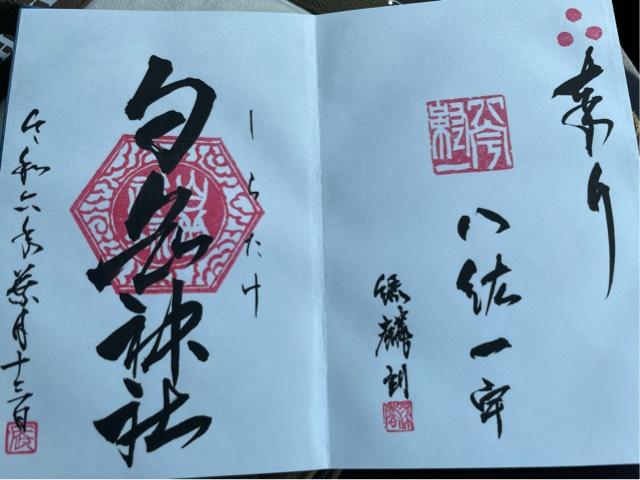 奉拝
八紘一宇
しらたけ
白岳神社
令和六年葉月十三日